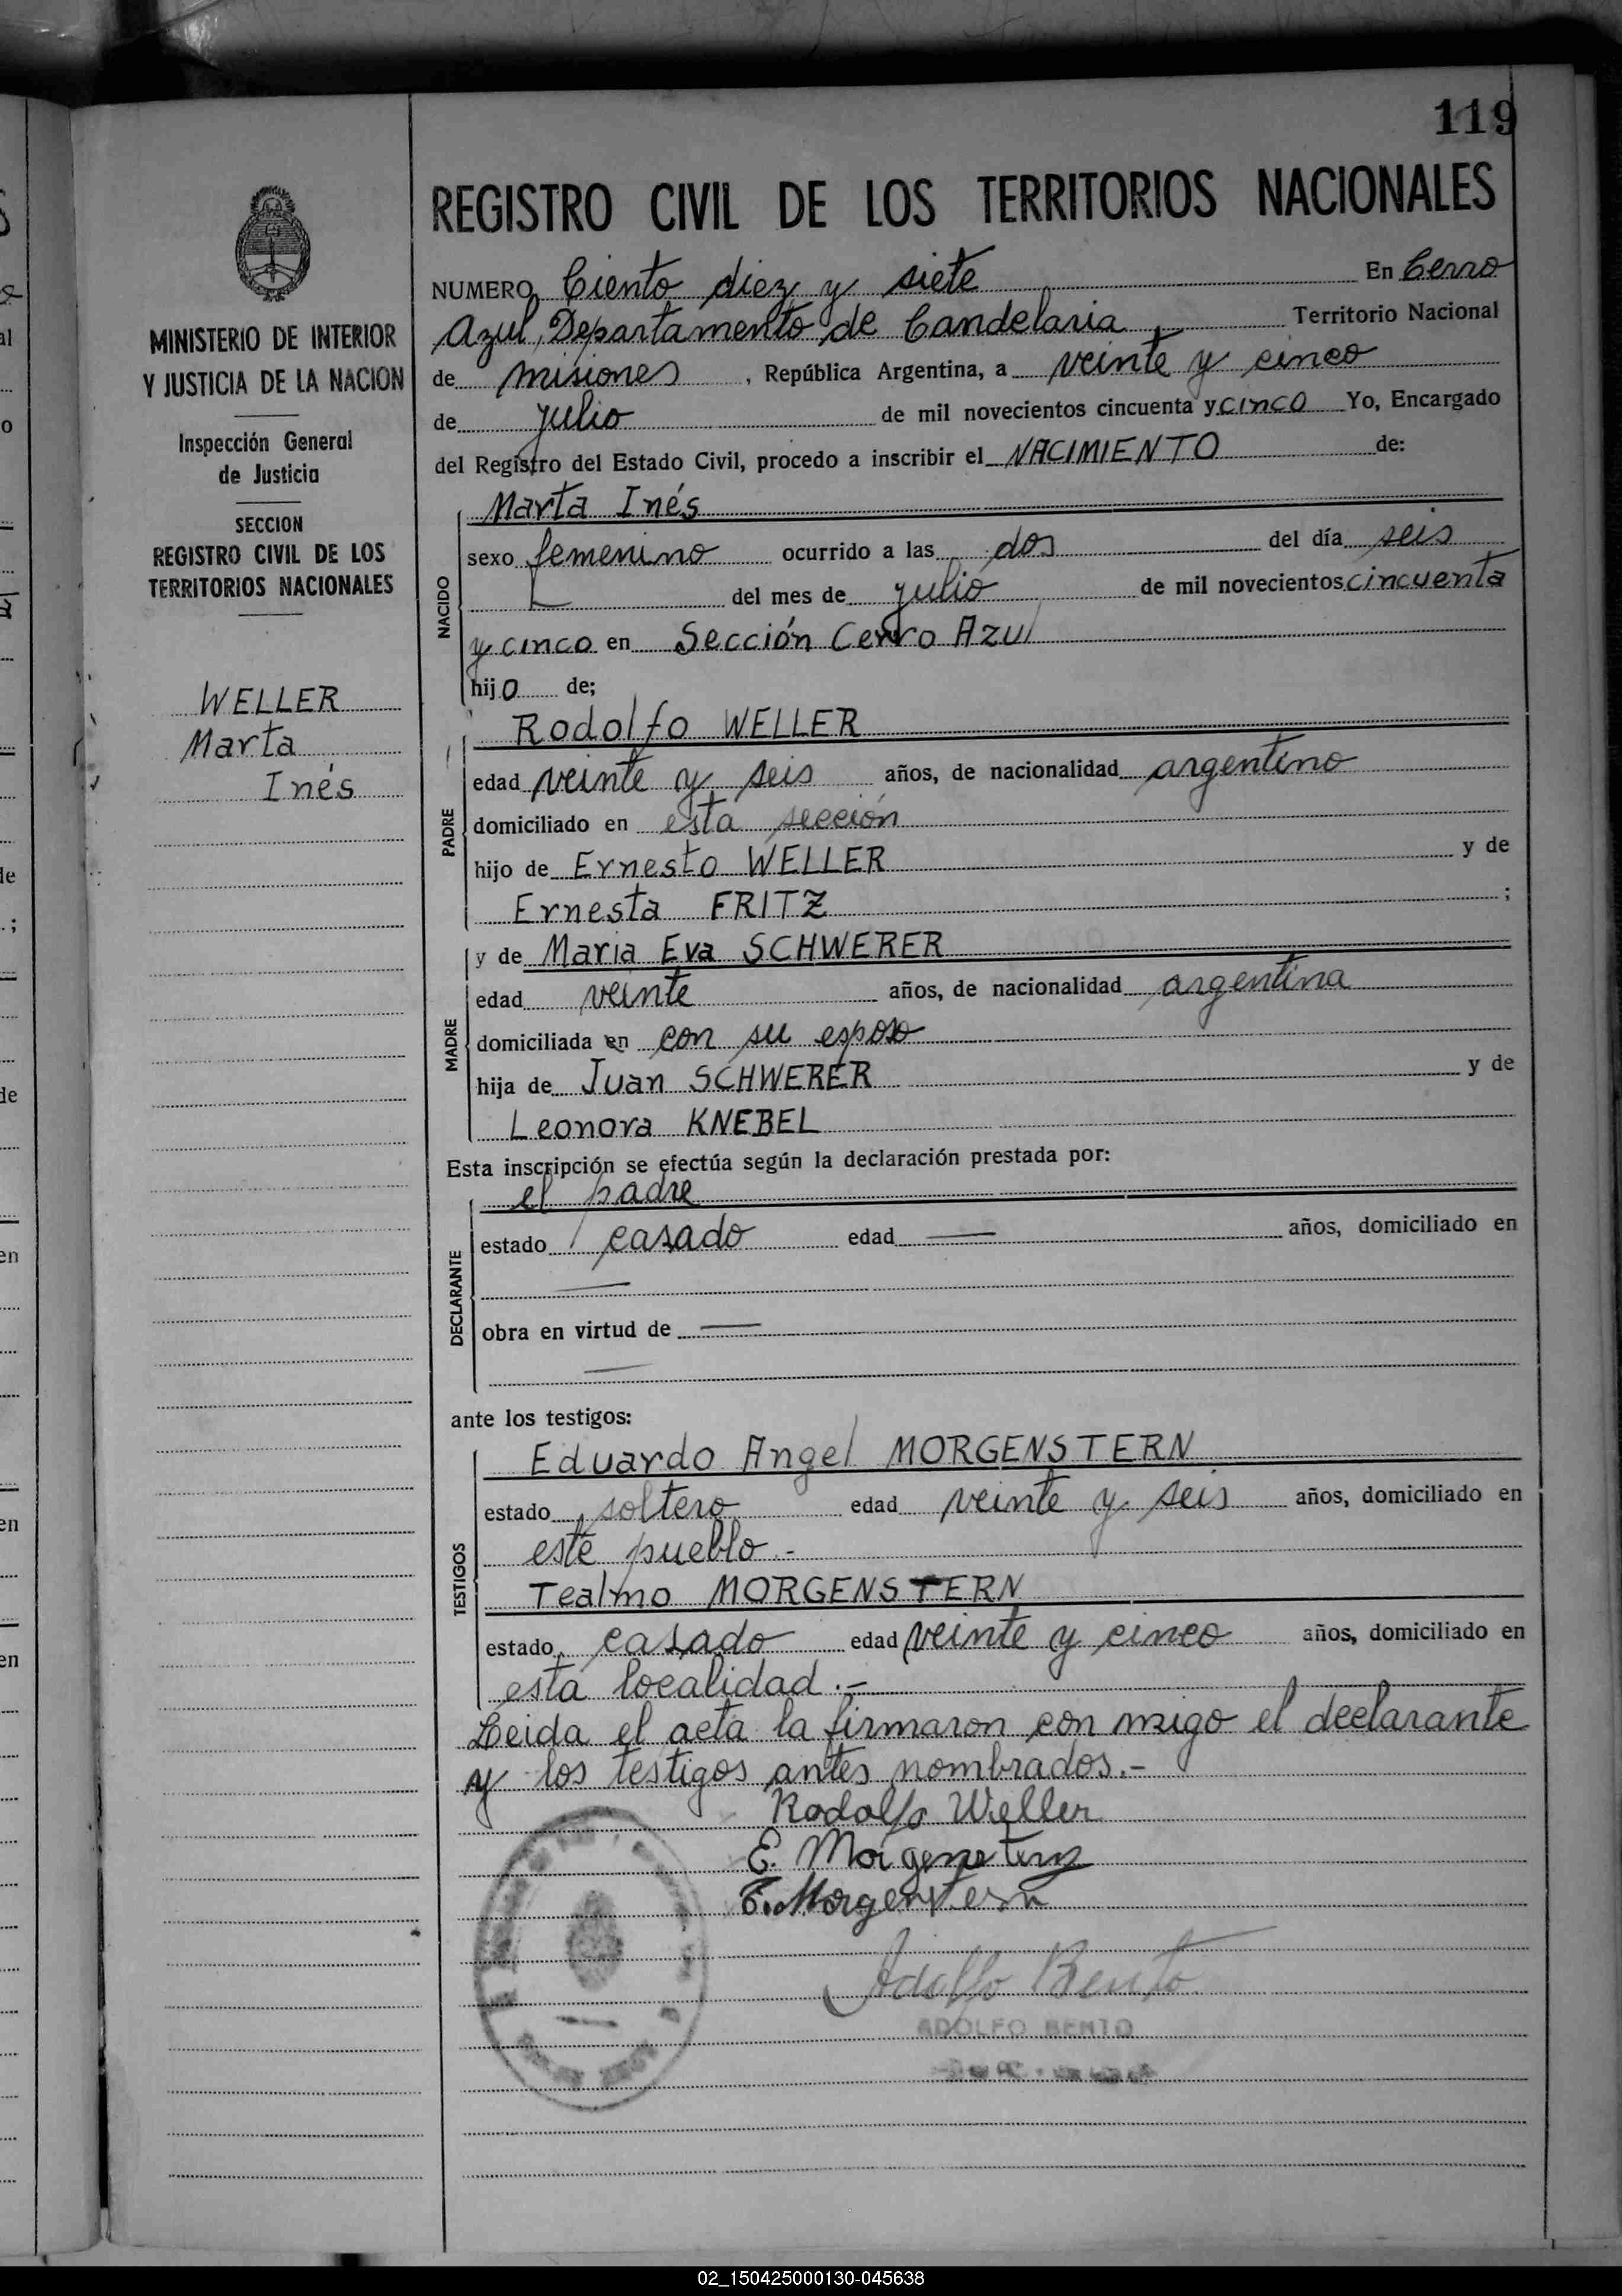 119
REGISTRO CIVIL DE LOS TERRITORIOS NACIONALES
MINISTERIO DE INTERIOR
Y JUSTICIA DE LA NACION
Inspección General
de Justicia
SECCION
REGISTRO CIVIL DE LOS
TERRITORIOS NACIONALES
WELLER
Marta
Inés
NUMERO Ciento diez y siete En Cerro
Azul, Departamento de Candelaria Territorio Nacional
de misiones, República Argentina, a veinte y cinco
de julio de mil novecientos cincuenta y cinco Yo, Encargado
del Registro del Estado Civil, procedo a inscribir el NACIMIENTO de:
NACIDO
Marta Inés
sexo femenino ocurrido a las dos del día seis
del mes de julio de mil novecientos cincuenta
y cinco en Sección Cerro Azul
hijo de;
PADRE
Rodolfo WELLER
edad veinte y seis años, de nacionalidad argentino
domiciliado en esta sección
hijo de Ernesto WELLER y de
Ernesta FRITZ ;
MADRE
y de Maria Eva SCHWERER
edad veinte años, de nacionalidad argentina
domiciliada en con su esposo
hija de Juan SCHWERER y de
Leonora KNEBEL
Esta inscripción se efectúa según la declaración prestada por:
DECLARANTE
el padre
estado casado edad — años, domiciliado en
—
obra en virtud de —
—
ante los testigos:
TESTIGOS
Eduardo Angel MORGENSTERN
estado soltero edad veinte y seis años, domiciliado en
este pueblo.-
Tealmo MORGENSTERN
estado casado edad veinte y cinco años, domiciliado en
esta localidad.-
Leida el acta la firmaron con migo el declarante
y los testigos antes nombrados.-
Rodolfo Weller
E. Morgenstern
T. Morgenstern
Adolfo Bento
ADOLFO BENTO
02_150425000130-045638